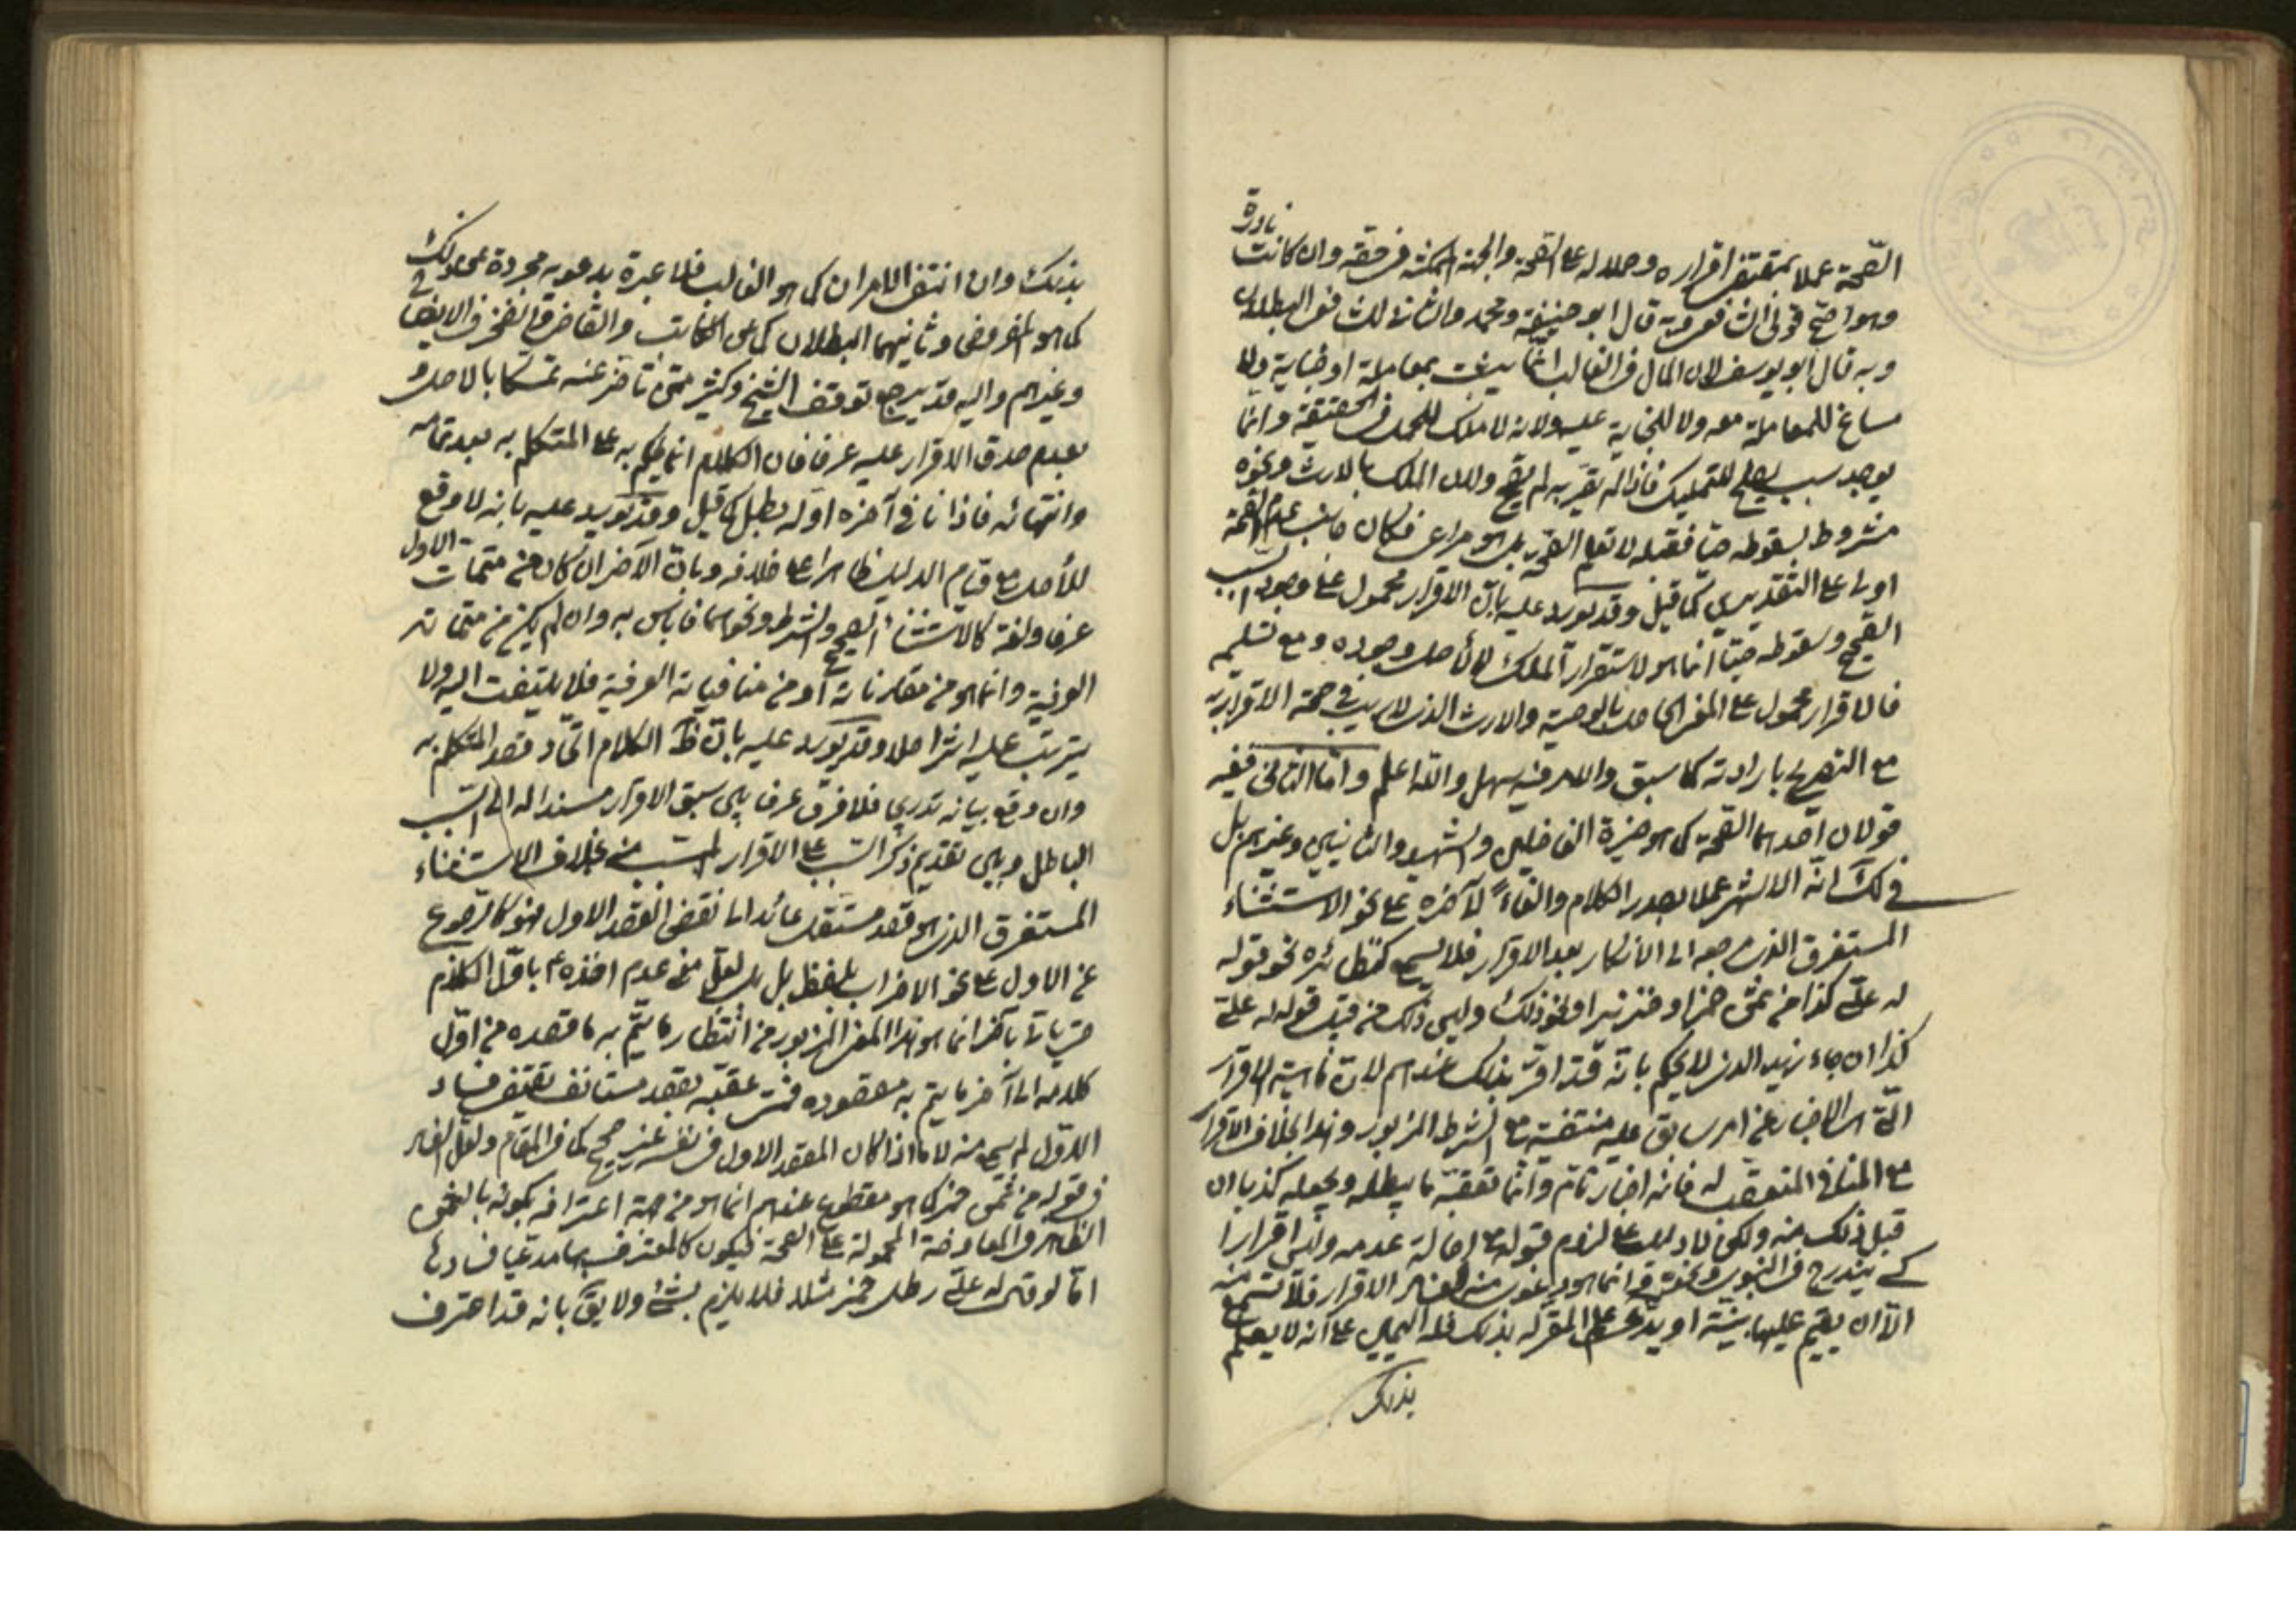 نادرة
الصّحة عملا بمقتضى اقراره وحملا له على الصحة والجهة الممكنة في حقه وان كانت
وهو اصح قولي الشافعي وبه قال ابو حنيفة ومحمد وان ثالث في البطلان
وبه قال ابو يوسف لان المال في الغالب انما يثبت بمعاملة او جناية ولا
مساغ للمعاملة معه ولا للجناية عليه ولانه لا ملك للحمل في الحقيقة وانما
يوجد سبب يصلح للتمليك فاذا لم يقر به لم يصح ولان الملك بالارث ونحوه
مشروط بسقوطه حيا فقبله لا تعلم الصحة بل هو مراعى فكان جانب عدم الصحة
اولى على التقديرين كما قيل وقد يورد عليه بان الاقرار محمول على وجود السبب
الصحيح وسقوطه حيا انما هو لاستقرار الملك لا لأصل وجوده ومع تسليمه
فالاقرار محمول على المعنى الحاصل بالوصية والارث الذي لا ريب في صحة الاقرار به
مع التصريح بارادته كما سبق والامر فيه سهل والله اعلم وامّا الثاني ففيه
قولان احدهما الصحة كما هو خيرة الفاضلين والشهيد والثانيين وغيرهم بل
في لك انه الاشهر عملا بصدر الكلام والغاءً لآخره على نحو الاستثناء
المستغرق الذي مرجعه الى الانكار بعد الاقرار فلا يسمع كنظائره نحو قوله
له علىّ كذا من ثمن خمر او خنزير او نحو ذلك وليس ذلك من قبيل قوله له علىّ
كذا ان جاء زيد الذي لا يحكم بانّه قد اقرّ بذلك عندهم لان ماهية الاقرار
التي هي الاخبار عن امر سابق عليه منتفية مع الشرط المزبور وهذا بخلاف الاقرار
مع المنافي المتعقب له فانه اخبار تام وانّما تعقبه ما يبطله ويجعله كذبا ان
قبل ذلك منه ولكن لا دليل على لزوم قبوله مع اصالة عدمه وليس اقرارا
كي يندرج في النبوي ونحوه وانما هو دعوى منه لفساد الاقرار فلا تسمع منه
الاّ ان يقيم عليها بينة او يدعي علم المقر له بذلك فله اليمين على انه لا يعلم
بذلك
بذلك وان انتفى الامران كما هو الغالب فلا عبرة بدعويه مجردة عن ذلك
كما هو المفروض وثانيهما البطلان كما عن الكاتب والقاضي والفخر في الايضاح
وغيرهم واليه قد يرجع توقف الشيخ وكثير ممّن تأخر عنه تمسكا بالاصل و
بعدم صدق الاقرار عليه عرفا فان الكلام انما يحكم به على المتكلم به بعد تمامه
وانتهائه فاذا نافى آخره اوله بطل كما قيل وقد يورد عليه بانه لا موقع
للأصل مع قيام الدليل ظاهرا على خلافه وبان الآخر ان كان من متممات الاول
عرفا ولغة كالاستثناء الصحيح والشرط ونحوهما فلا بأس به وان لم يكن من متمماته
العرفية وانما هو من مقارناته او من منافياته العرفية فلا يلتفت اليه ولا
يترتب عليه اثر اصلا وقد يورد عليه بان ظ الكلام اتحاد قصد المتكلم به
وان وقع بيانه تدريجا فلا فرق عرفا بين سبق الاقرار مسندا له الى السّبب
الباطل وبين تقديم ذكر السّبب على الاقرار المسبّب منه بخلاف الاستثناء
المستغرق الذي هو قصد مستقل عائد الى نقض القصد الاول فهو كالرّجوع
عن الاول على نحو الاضراب بلفظ بل بل لعل من عدم اخذه باقل الكلام
حتى يأتي بآخر انما هو هذا المعنى المزبور من انتظار ما يتم به ما قصده من اوّل
كلامه الى آخر ما يتم به مقصوده فمتى عقبه بقصد مستانف يقتضي فساد
الاول لم يسمع منه لا ما اذا كان المقصد الاول في نفسه غير صحيح كما في المقام ولعل الفساد
في قوله من ثمن خمر كما هو مقطوع عندهم انما هو من جهة اعترافه بكونه بالعوض
الظاهر في المعاوضة المحمولة على الصحة فيكون كالمعترف بها مدعيا فسادها
امّا لو قال له علىّ رطل خمر مثلا فلا يلزم بشئ ولا يق بانه قد اعترف